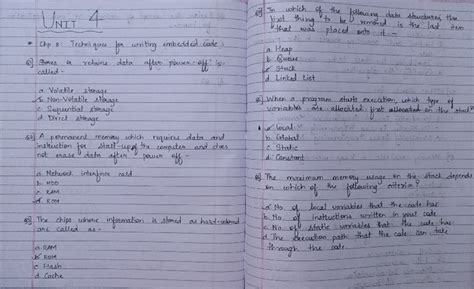 UNIT 4
* Chp 8: Techniques for writing embedded code:
Q1] Stores or retains data after power-off is
called -
a. Volatile storage
b. Non-Volatile storage
c. Sequential storage
d. Direct storage
Q2] A permanent memory which requires data and
instruction for start-up of the computer and does
not erase data after power off -
a. Network interface card
b. HDD
c. RAM
d. ROM
Q3] The chips where information is stored as hard-
are called as -
a. RAM
b. ROM
c. Flash
d. Cache
Q4] In which of the following data structures, the
first thing to be removed is the last item
that was placed onto it -
a. Heap
b. Queue
c. Stack
d. Linked List
Q5] When a program starts execution, which type of
variables are allocated first allocated on the stack?
a. local
b. Global
c. Static
d. Constant
Q6] The maximum memory usage on the stack depends
on which of the following criteria?
a. No of local variables that the code has
b. No of instructions written in your code
c. No of static variables that the code has
d. The execution path that the code can take
through the code.